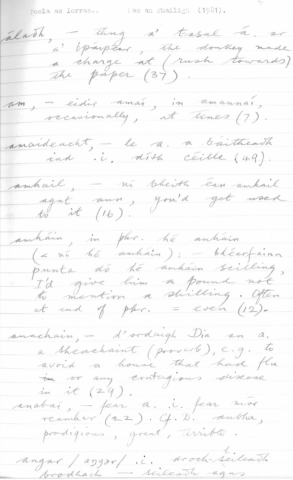 Focla as Iorras... as an Ghailigh (1981).
áladh, – thug a' t-asal á. ar
a' bpáipéar, the donkey made
a charge at (rush towards)
the paper (37).
am, – eidir amái, in amannaí,
occasionally, at times (7).
amaideacht, – le a. a báitheadh
iad .i. díth céille (49).
amhail, – ní bheith éan amhail
agat ann, you'd get used
to it (16).
amháin, in phr. hé amháin
(< ní hé amháin); – bhéarfainn
punta dó hé amháin scilling,
I'd give him a pound not
to mention a shilling. Often
at end of phr. = even (12).
anachain, – d'orduigh Dia an a.
a sheachaint (proverb), e.g. to
avoid a house that had flu
or any contagious disease
in it (29).
anabaí, – fear a. i. fear mór
reamhar (22). Cf. D. anbha,
prodigious, great, terrible.
angar /aŋgər/ .i. droch-
brodhach – seileadh agus